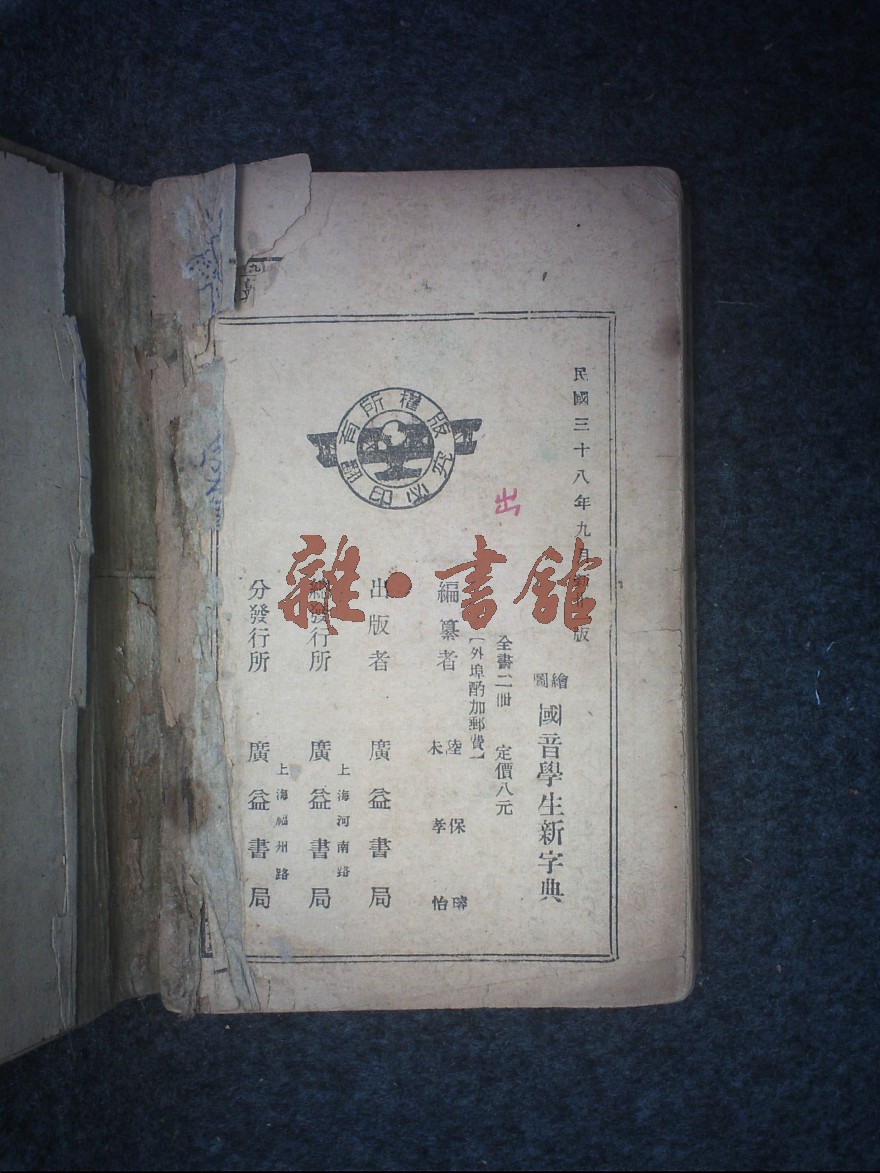 民國三十八年九月新�版
繪圖
國音學生新字典
全書二冊 定價八元
【外埠酌加郵費】
編纂者 陸保璿 朱孝怡
出版者 廣益書局
總發行所 上海河南路 廣益書局
分發行所 上海福州路 廣益書局
版權所有
翻印必究
出
雜·書館